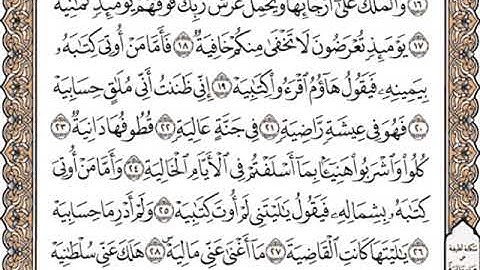 ١٦ وَٱلْمَلَكُ عَلَىٰٓ أَرْجَآئِهَا وَيَحْمِلُ عَرْشَ رَبِّكَ فَوْقَهُمْ يَوْمَئِذٍ ثَمَٰنِيَةٌ
١٧ يَوْمَئِذٍ تُعْرَضُونَ لَا تَخْفَىٰ مِنكُمْ خَافِيَةٌ ١٨ فَأَمَّا مَنْ أُوتِىَ كِتَٰبَهُۥ
بِيَمِينِهِۦ فَيَقُولُ هَآؤُمُ ٱقْرَءُوا۟ كِتَٰبِيَهْ ١٩ إِنِّى ظَنَنتُ أَنِّى مُلَٰقٍ حِسَابِيَهْ
٢٠ فَهُوَ فِى عِيشَةٍ رَّاضِيَةٍ ٢١ فِى جَنَّةٍ عَالِيَةٍ ٢٢ قُطُوفُهَا دَانِيَةٌ ٢٣
كُلُوا۟ وَٱشْرَبُوا۟ هَنِيٓـًٔۢا بِمَآ أَسْلَفْتُمْ فِى ٱلْأَيَّامِ ٱلْخَالِيَةِ ٢٤ وَأَمَّا مَنْ أُوتِىَ
كِتَٰبَهُۥ بِشِمَالِهِۦ فَيَقُولُ يَٰلَيْتَنِى لَمْ أُوتَ كِتَٰبِيَهْ ٢٥ وَلَمْ أَدْرِ مَا حِسَابِيَهْ
٢٦ يَٰلَيْتَهَا كَانَتِ ٱلْقَاضِيَةَ ٢٧ مَآ أَغْنَىٰ عَنِّى مَالِيَهْ ٢٨ هَلَكَ عَنِّى سُلْطَٰنِيَهْ